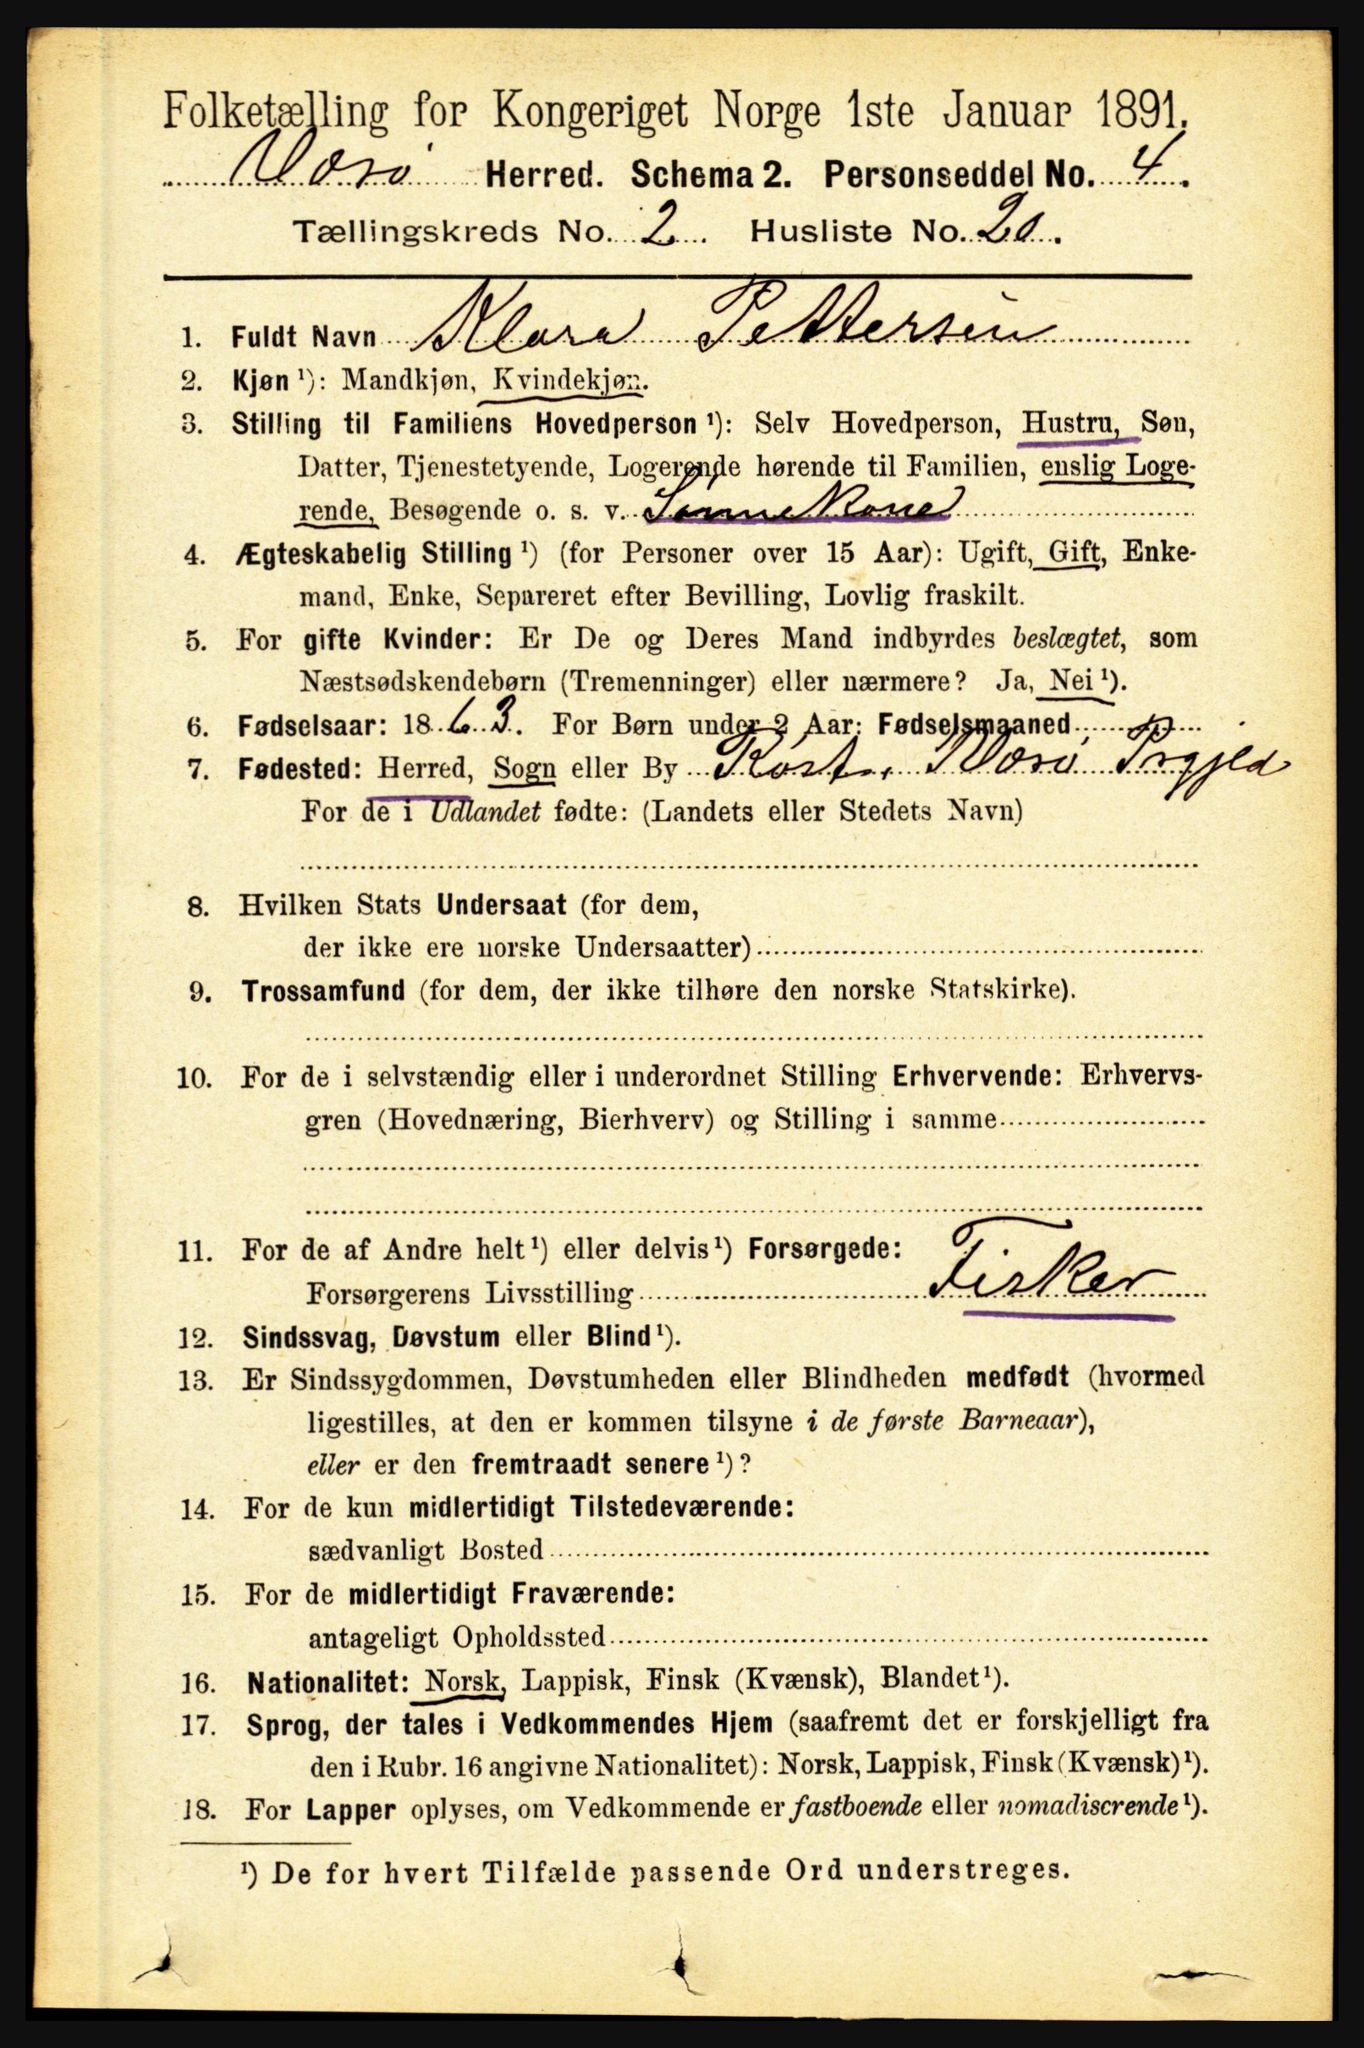 Folketælling for Kongeriget Norge 1ste Januar 1891.
Værø Herred. Schema 2. Personseddel No. 4.
Tællingskreds No. 2. Husliste No. 20.
1. Fuldt Navn Klara Pettersen
2. Kjøn ¹): Mandkjøn, Kvindekjøn.
3. Stilling til Familiens Hovedperson ¹): Selv Hovedperson, Hustru, Søn,
Datter, Tjenestetyende, Logerende hørende til Familien, enslig Loge-
rende, Besøgende o. s. v. Sønnekone
4. Ægteskabelig Stilling ¹) (for Personer over 15 Aar): Ugift, Gift, Enke-
mand, Enke, Separeret efter Bevilling, Lovlig fraskilt.
5. For gifte Kvinder: Er De og Deres Mand indbyrdes beslægtet, som
Næstsødskendebørn (Tremenninger) eller nærmere? Ja, Nei ¹).
6. Fødselsaar: 1863. For Børn under 2 Aar: Fødselsmaaned
7. Fødested: Herred, Sogn eller By Røst, Værø Prgjeld
For de i Udlandet fødte: (Landets eller Stedets Navn)
8. Hvilken Stats Undersaat (for dem,
der ikke ere norske Undersaatter)
9. Trossamfund (for dem, der ikke tilhøre den norske Statskirke).
10. For de i selvstændig eller i underordnet Stilling Erhvervende: Erhvervs-
gren (Hovednæring, Bierhverv) og Stilling i samme
11. For de af Andre helt ¹) eller delvis ¹) Forsørgede:
Forsørgerens Livsstilling Fisker
12. Sindssvag, Døvstum eller Blind ¹).
13. Er Sindssygdommen, Døvstumheden eller Blindheden medfødt (hvormed
ligestilles, at den er kommen tilsyne i de første Barneaar),
eller er den fremtraadt senere ¹)?
14. For de kun midlertidigt Tilstedeværende:
sædvanligt Bosted
15. For de midlertidigt Fraværende:
antageligt Opholdssted
16. Nationalitet: Norsk, Lappisk, Finsk (Kvænsk), Blandet ¹).
17. Sprog, der tales i Vedkommendes Hjem (saafremt det er forskjelligt fra
den i Rubr. 16 angivne Nationalitet): Norsk, Lappisk, Finsk (Kvænsk) ¹).
18. For Lapper oplyses, om Vedkommende er fastboende eller nomadiserende ¹).
¹) De for hvert Tilfælde passende Ord understreges.